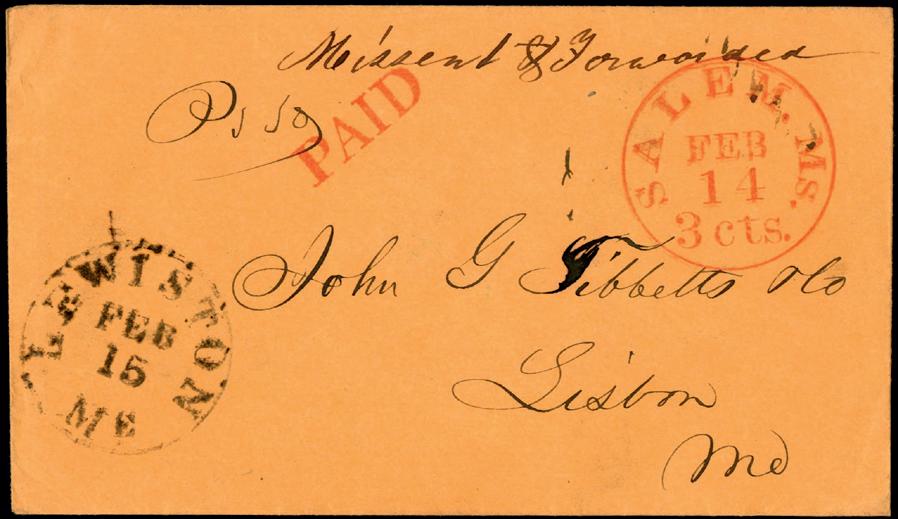 Missent & Forwarded
PAID
SALEM. Ms.
FEB
14
3 cts.
John G Tibbetts & Co
Lisbon
Me
LEWISTON
FEB
15
ME